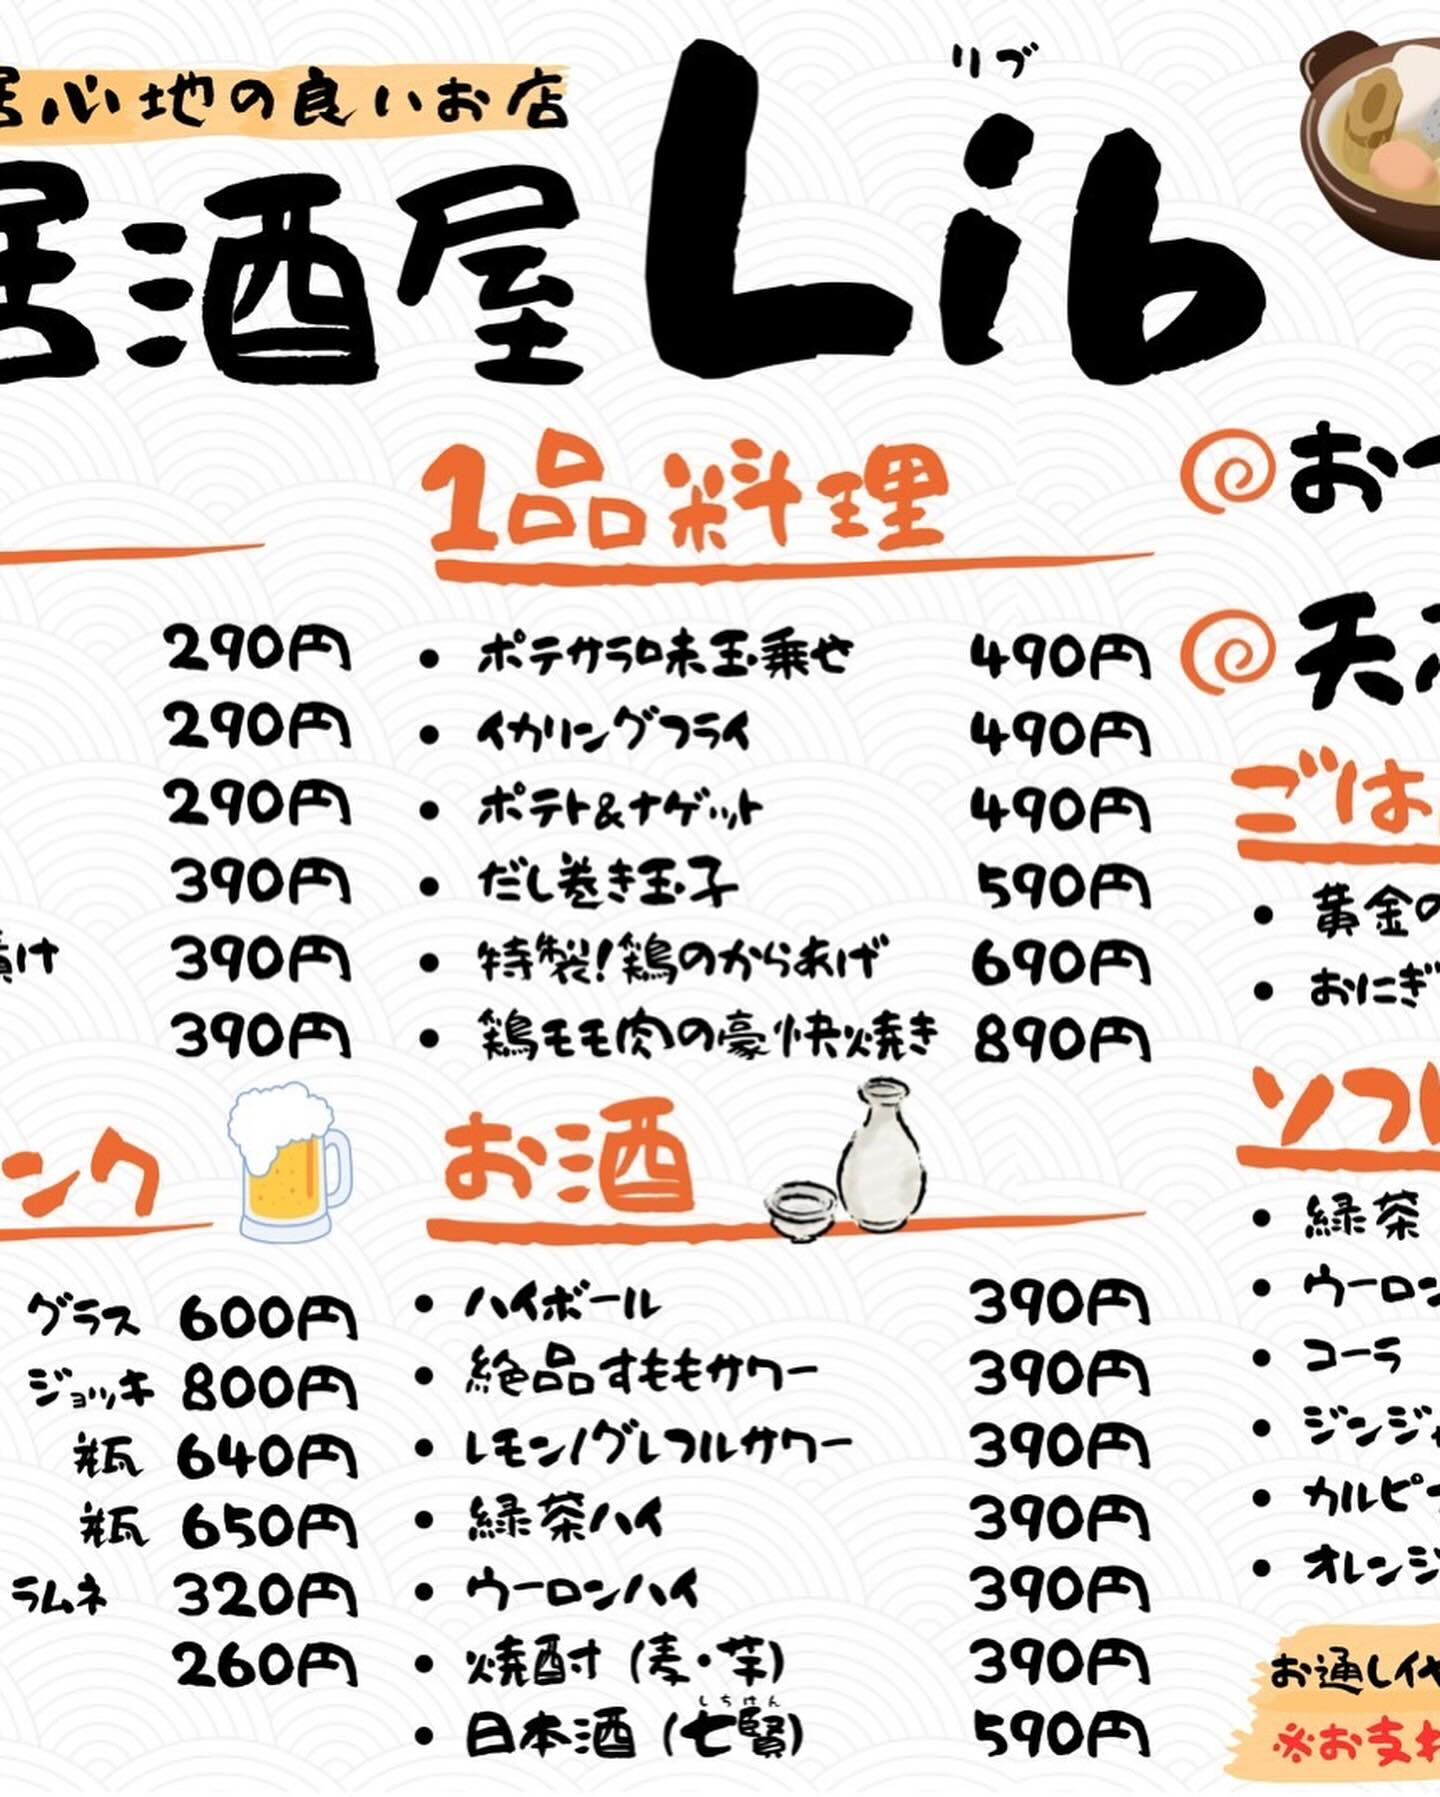 居心地の良いお店
リブ
居酒屋Lib
290円
290円
290円
390円
漬け 390円
390円
1品料理
・ポテサラ味玉乗せ 490円
・イカリングフライ 490円
・ポテト&ナゲット 490円
・だし巻き玉子 590円
・特製!鶏のからあげ 690円
・鶏モモ肉の豪快焼き 890円
ンク
グラス 600円
ジョッキ 800円
瓶 640円
瓶 650円
ラムネ 320円
260円
お酒
・ハイボール 390円
・絶品すももサワー 390円
・レモン/グレフルサワー 390円
・緑茶ハイ 390円
・ウーロンハイ 390円
・焼酎(麦・芋) 390円
しちけん
・日本酒(七賢) 590円
お
天
ごは
・黄金の
・おにぎ
ソフ
・緑茶
・ウーロン
・コーラ
・ジンジャ
・カルピ
・オレンジ
お通し代
※お支わ